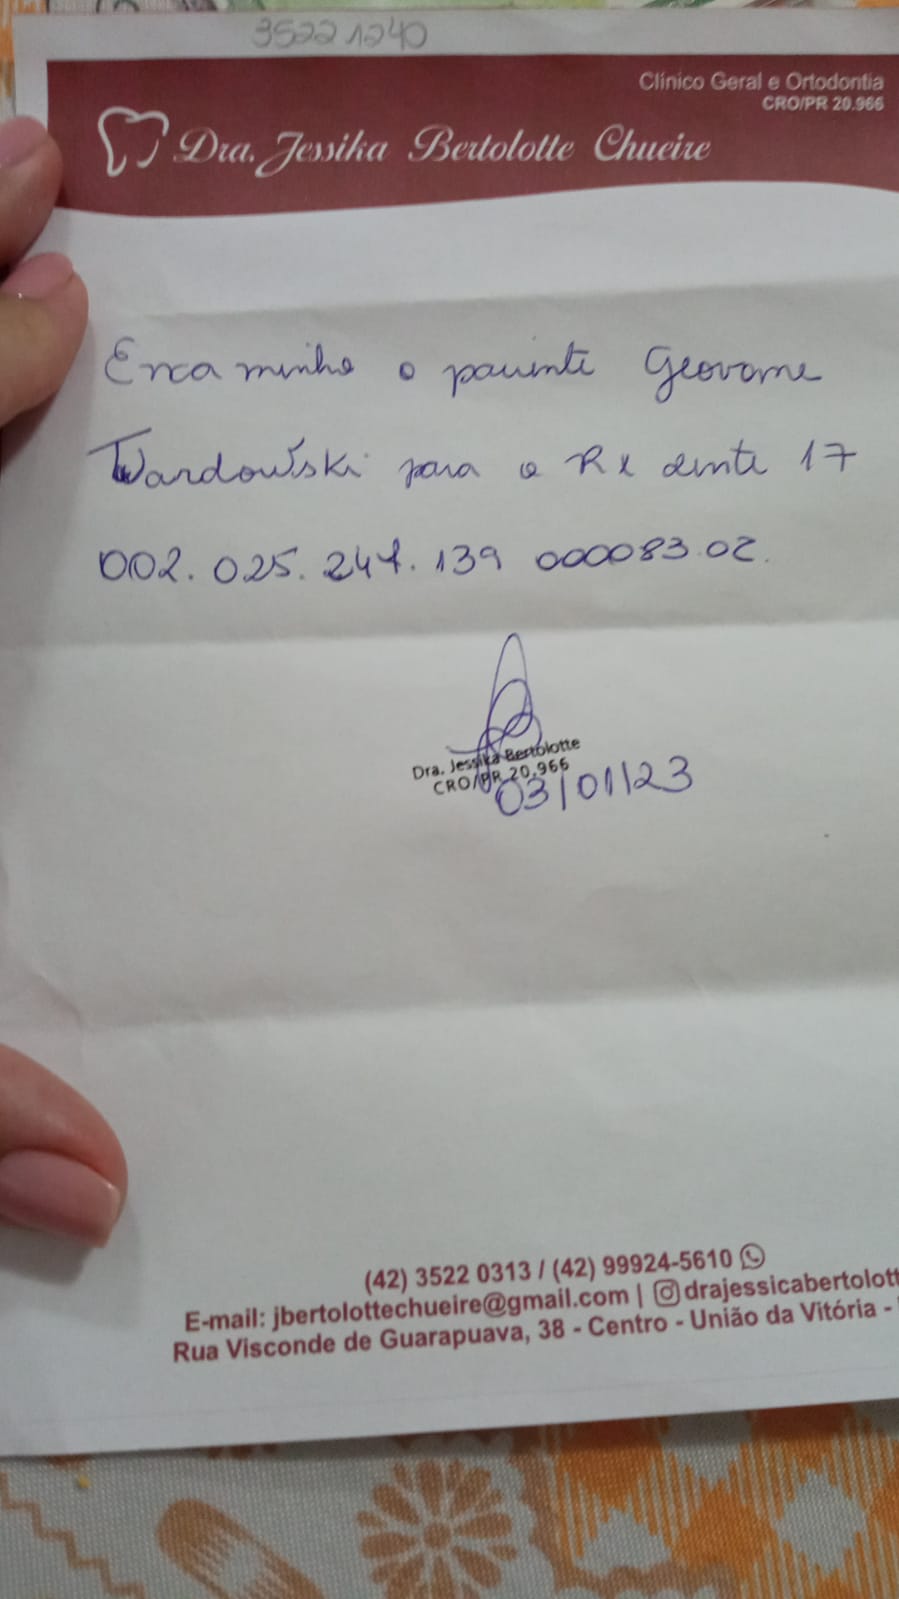 35221240
Clínico Geral e Ortodontia
CRO/PR 20.966
Dra. Jessika Bertolotte Chueire
Encaminho o paciente Geovane
Wardowski para o RX dente 17
002.025.247.139 000083.02.
Dra. Jessika Bertolotte
CRO/PR 20.966
03/01/23
(42) 3522 0313 / (42) 99924-5610
E-mail: jbertolottechueire@gmail.com | drajessicabertolott
Rua Visconde de Guarapuava, 38 - Centro - União da Vitória -